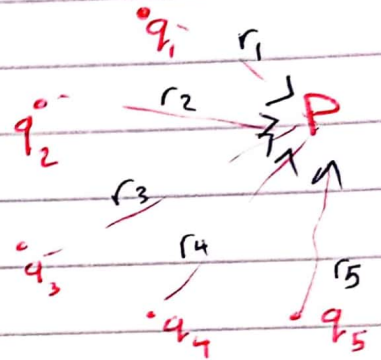 q₁
r₁
r₂
P
q₂
r₃
q₃
r₄
q₄
r₅
q₅